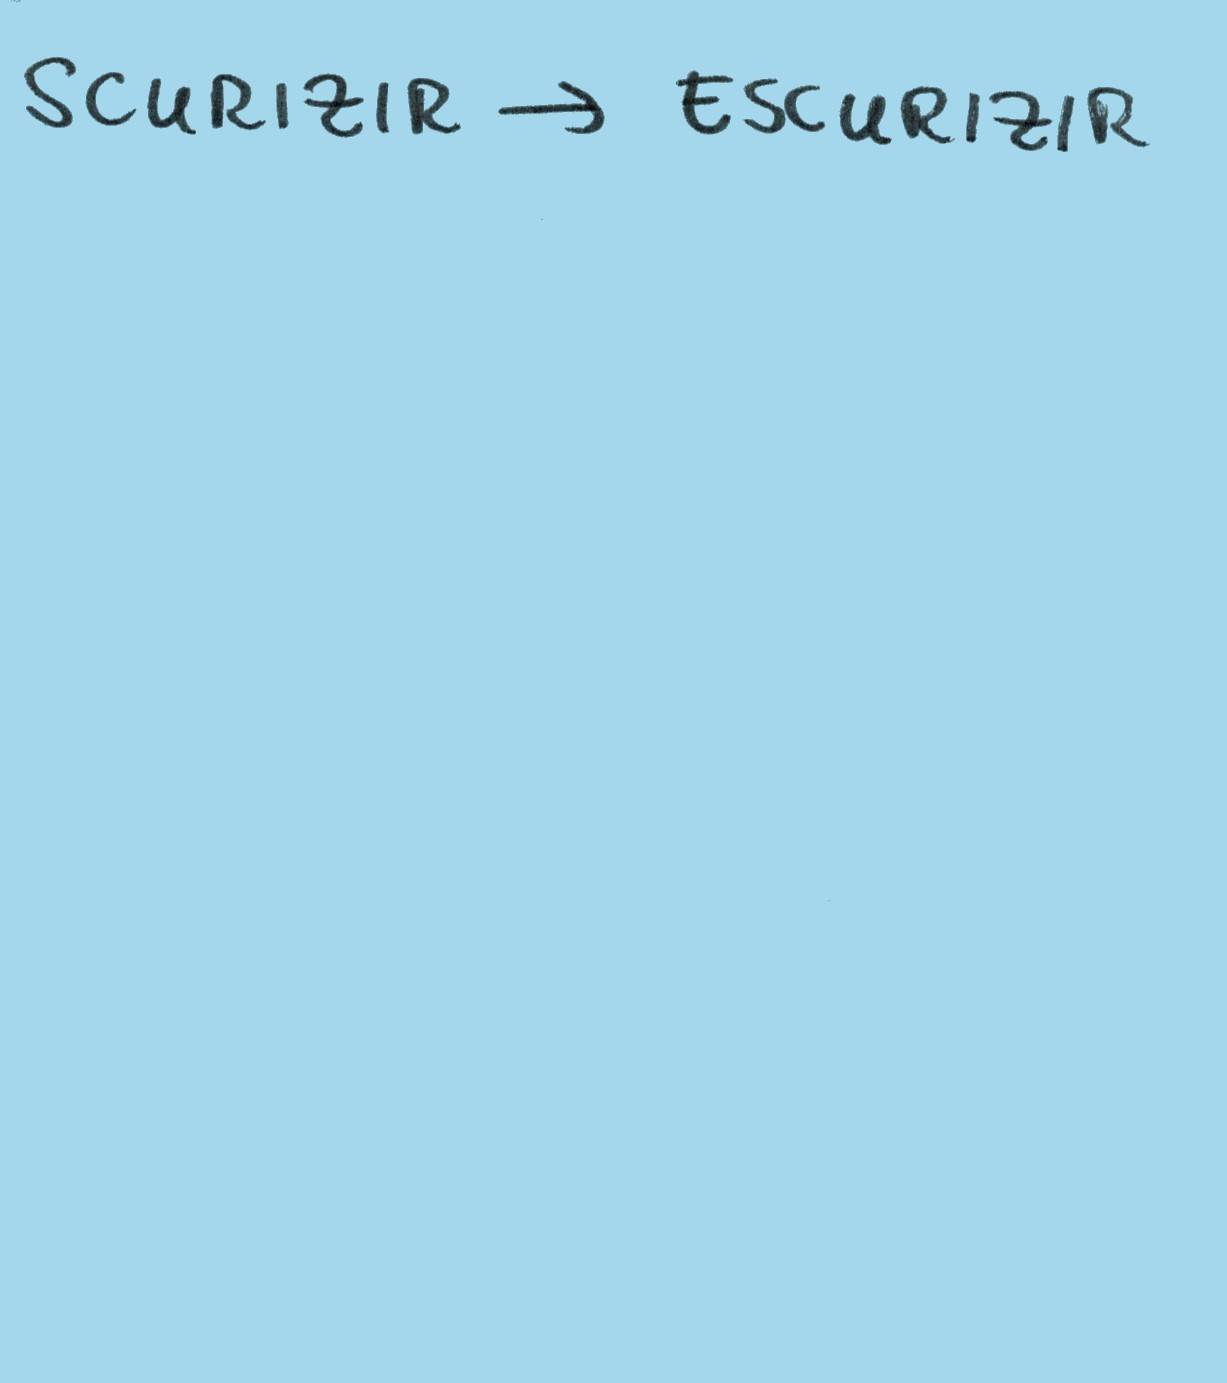 SCURIZIR → ESCURIZIR